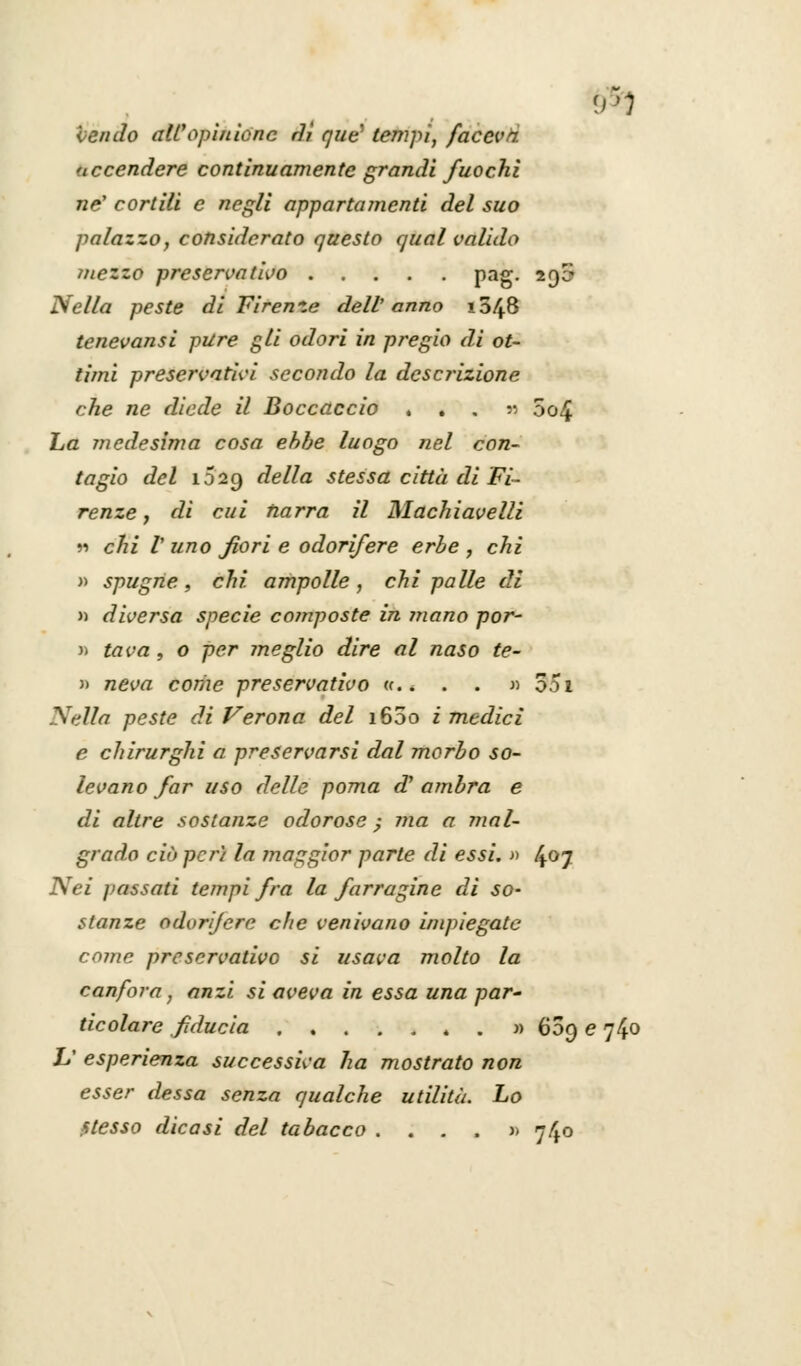 957
vendo all'opinione di que' tempi, faceva
accendere continuamente grandi fuochi
ne' cortili e negli appartamenti del suo
palazzo, considerato questo qual valido
mezzo preservativo . . . . . pag. 293
Nella peste di Firenze dell' anno 1348
tenevansi pure gli odori in pregio di ot-
timi preservativi secondo la descrizione
che ne diede il Boccaccio . . . » 304
La medesima cosa ebbe luogo nel con-
tagio del 1529 della stessa città di Fi-
renze, di cui narra il Machiavelli
» chi l' uno fiori e odorifere erbe , chi
» spugne , chi ampolle , chi palle di
» diversa specie composte in mano por-
» tava , o per meglio dire al naso te-
» neva come preservativo «. . . . » 351
Nella peste di Verona del 1630 i medici
e chirurghi a preservarsi dal morbo so-
levano far uso delle poma d' ambra e
di altre sostanze odorose ; ma a mal-
grado ciò perì la maggior parte di essi. » 407
Nei passati tempi fra la farragine di so-
stanze odorifere che venivano impiegate
come preservativo si usava molto la
canfora, anzi si aveva in essa una par-
ticolare fiducia . . . . . . . » 639 e 740
L' esperienza successiva ha mostrato non
esser dessa senza qualche utilità. Lo
stesso dicasi del tabacco . . . . » 740